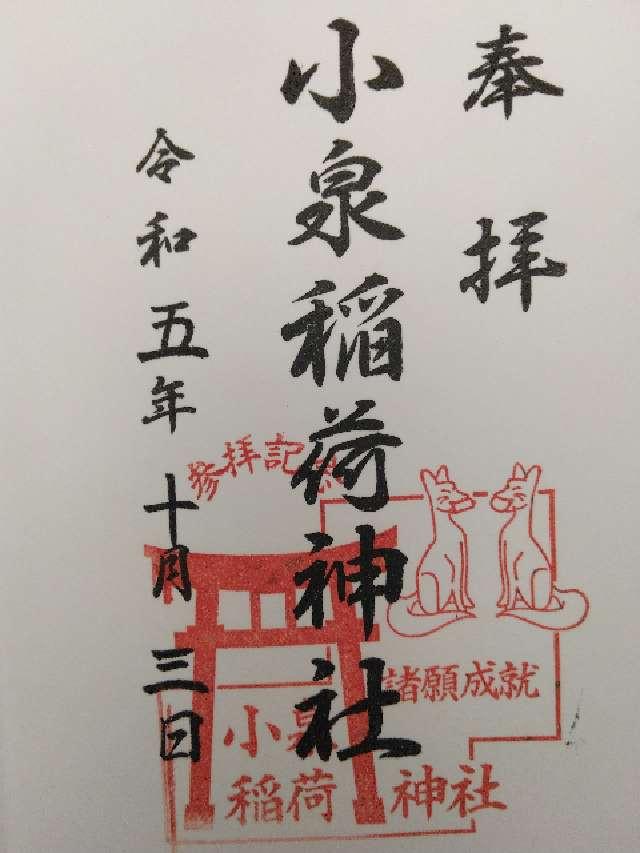 奉拝
小泉稲荷神社
令和五年十月三日
参拝記念
諸願成就
小泉
稲荷神社